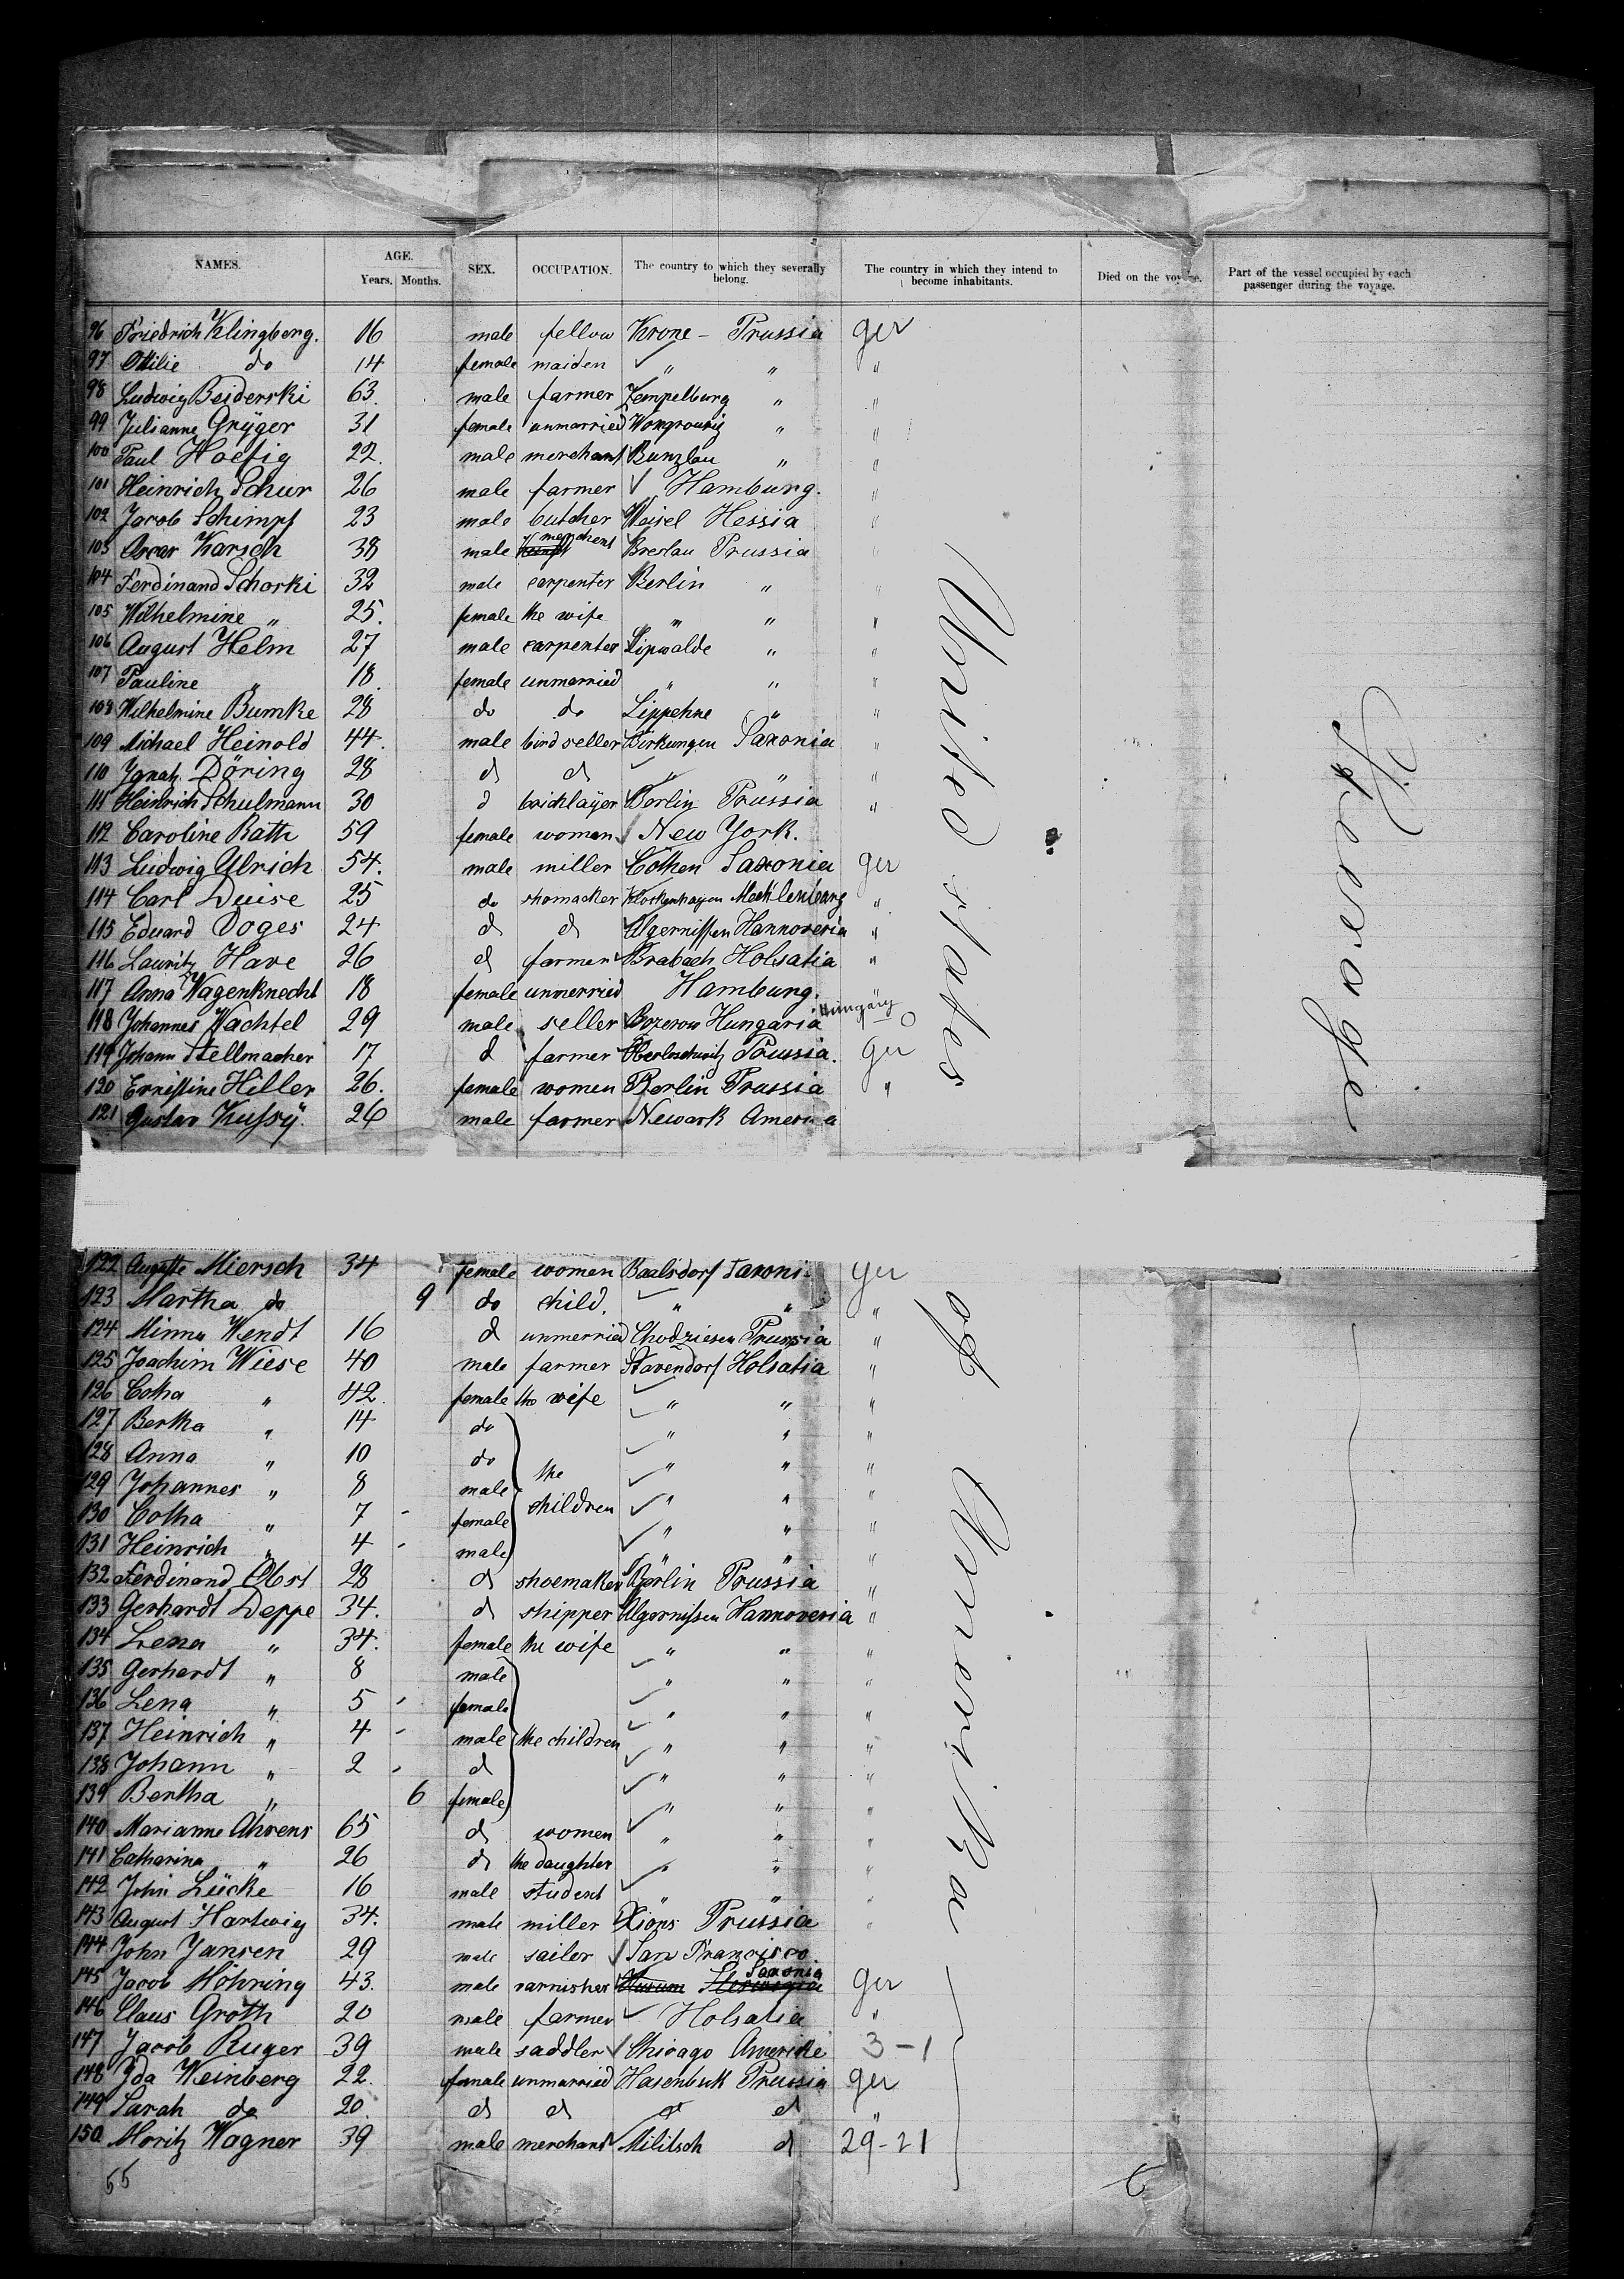 NAMES. AGE. Years. Months. SEX. OCCUPATION. The country to which they severally belong. The country in which they intend to become inhabitants. Died on the voyage. Part of the vessel occupied by each passenger during the voyage.
96 Friedrich Klingberg. 16 male fellow Krone - Prussia ger
97 Ottilie do 14 female maiden " " "
98 Ludwig Beiderski 63. male farmer Zempelburg " "
99 Julianne Gryger 31 female unmarried " "
100 Paul Hoefig 22. male merchant Bunzlau " "
101 Heinrich Schur 26 male farmer Hamburg. "
102 Jacob Schimpf 23 male butcher Weisel Hessia "
103 Karsch 38 male merchant Breslau Prussia "
104 Ferdinand Schorki 32 male carpenter Berlin " "
105 Wilhelmine " 25. female the wife " " "
106 August Helm 27 male carpenter Lipwalde " "
107 Pauline " 18. female unmarried " " "
108 Wilhelmine Bumke 28 do do Lippehne " "
109 Michael Heinold 44. male bird seller Birkungen Saxonia "
110 Ignatz Döring 28 d d " "
111 Heinrich Schulmann 30 d bricklayer Berlin Prussia "
112 Caroline Rath 59 female women New York.
113 Ludwig Ulrich 54. male miller Cöthen Saxonia ger
114 Carl Duise 25 do shomacker Klockenhagen Mecklenburg "
115 Eduard Doges 24 d d Algernissen Hannoveria "
116 Lauritz Have 26 d farmer Brabach Holsatia "
117 Anna Wagenknecht 18 female unmerried Hamburg.
118 Johannes Wachtel 29 male seller Bozerow Hungaria Hungary
119 Johann Stellmacher 17 d farmer Prussia. Ger
120 Ernistine Hiller 26. female women Berlin Prussia "
121 Gustav Kussy. 26 male farmer Newark America
United States
Steerage
122 Auguste Miersch 34 female women Baalsdorf Saxoni ger
123 Martha do 9 do child. " " "
124 Minna Wendt 16 d unmerried Chodziesen Prussia "
125 Joachim Wiese 40 male farmer Stavendorf Holsatia "
126 Catha " 42. female the wife " " "
127 Bertha " 14 do " " "
128 Anna " 10 do the " " "
129 Johannes " 8 male children " " "
130 Catha " 7 - female " " "
131 Heinrich " 4 - male " " "
132 Ferdinand Obst 28 d shoemaker Berlin Prussia "
133 Gerhardt Deppe 34. d shipper Algernissen Hannoveria "
134 Lena " 34. female the wife " " "
135 Gerhardt " 8 male " " "
136 Lena " 5 - female " " "
137 Heinrich " 4 - male the children " " "
138 Johann " 2 - d " " "
139 Bertha " 6 female " " "
140 Marianne Ahrens 65 d women " " "
141 Catharina " 26 d the daughter " " "
142 John Lücke 16 male student " " "
143 August Hartwig 34. male miller Xions Prussia "
144 John Jansen 29 male sailer San Francisco
145 Jacob Möhring 43. male varnisher Husum Saxonia ger
146 Claus Groth 20 male farmer Holsatia "
147 Jacob Ruger 39 male saddler Chicago Amerike 3-1
148 Ida Weinberg 22. female unmarried Hasenbuk Prussia ger
149 Sarah do 20. d d d d "
150 Moritz Wagner 39 male merchant Militsch d 29-21
of America
55